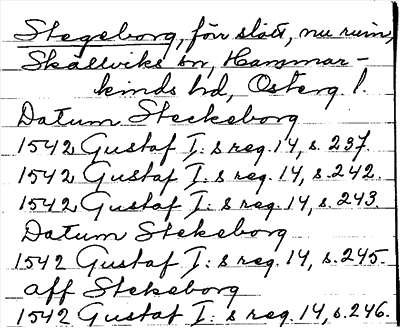 Stegeborg, förr slott, nu ruin,
Skällviks sn, Hammar-
kinds hd, Österg. l.
Datum Steckeborg
1542 Gustaf I: s reg. 14, s. 237.
1542 Gustaf I: s reg. 14, s. 242.
1542 Gustaf I: s reg. 14, s. 243.
Datum Stekeborg
1542 Gustaf I: s reg. 14, s. 245.
aff Stekeborg
1542 Gustaf I: s reg. 14, s. 246.